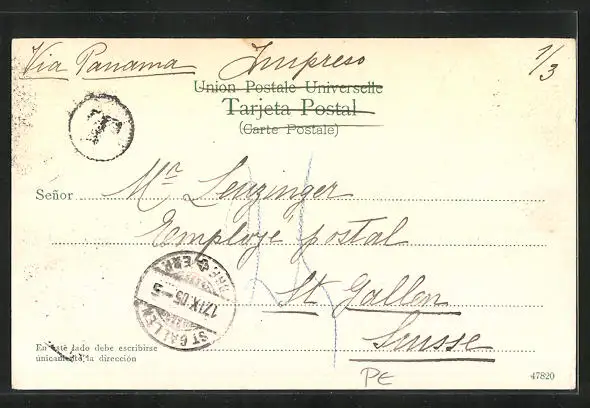 Via Panama Impreso 1/3
Union Postale Universelle
Tarjeta Postal
(Carte Postale)
T
Señor Mr Leuzinger
Employé postal
St Gallen
Suisse
BRF. ERP.
17.IX.05.-5
ST GALLEN
En este lado debe escribirse
únicamente la dirección
PE
47820